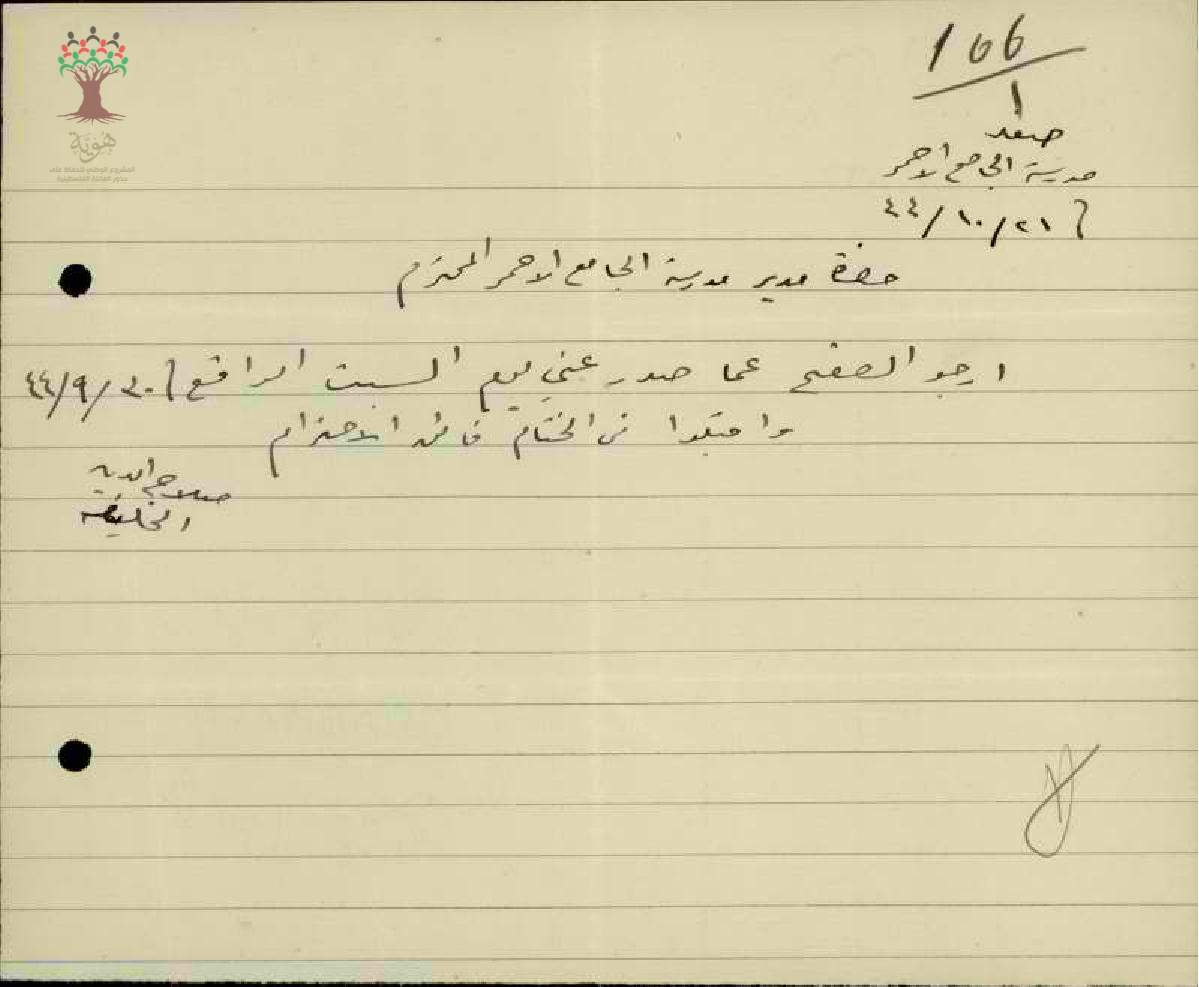 106
1
هُوِيَّة
المشروع الوطني للحفاظ على
جذور العائلة الفلسطينية
صفد
مدرسة الجامع الاحمر
٤٤/١٠/٢١
حضرة مدير مدرسة الجامع الاحمر المحترم
ارجو الصفح عما صدر عني يوم السبت الواقع ٤٤/٩/٣٠
واقبلوا في الختام فائق الاحترام
صلاح الدين
الخليفه